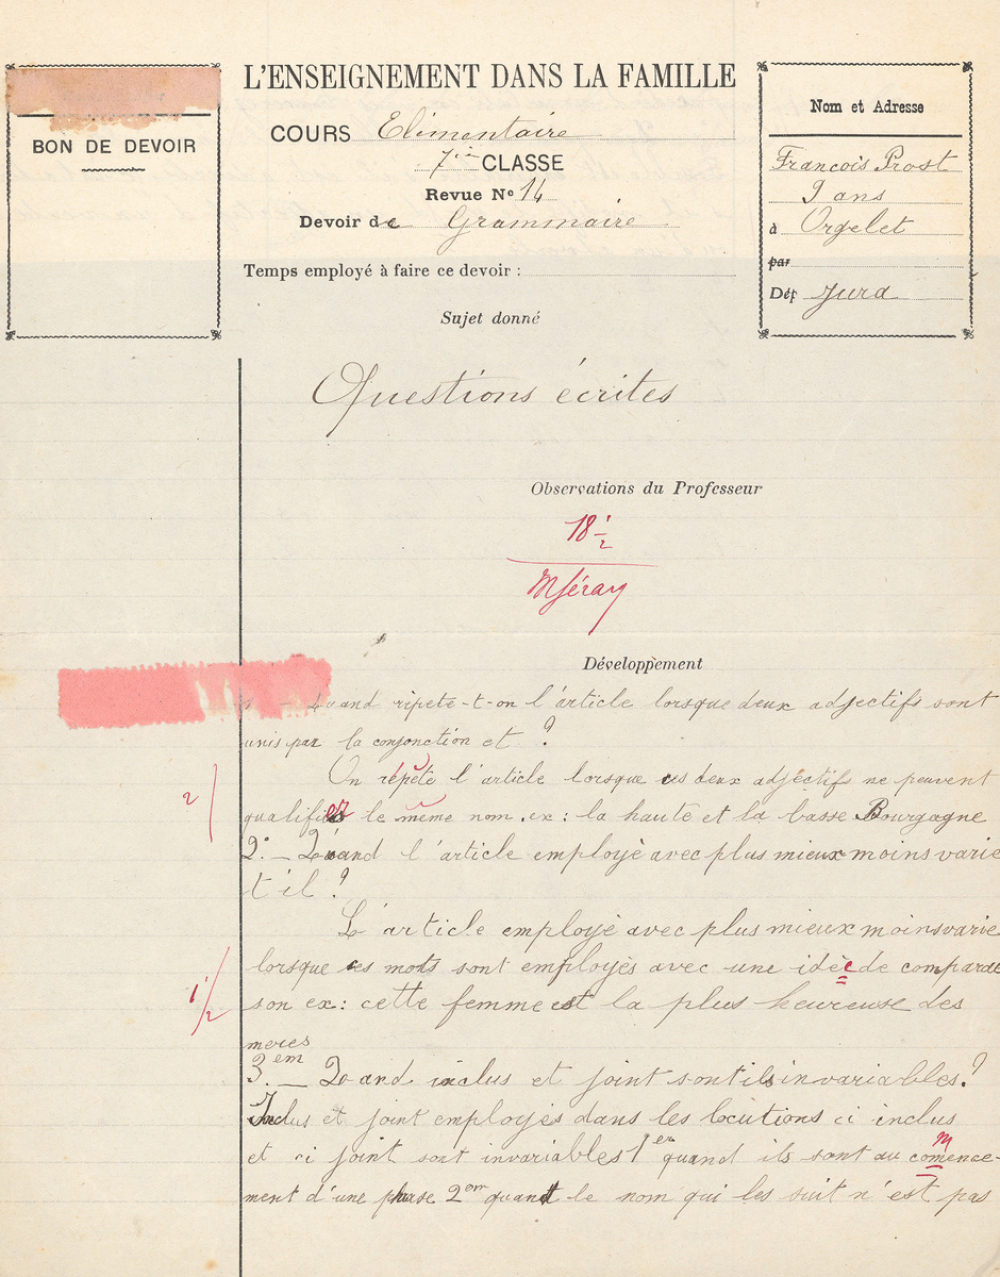 L'ENSEIGNEMENT DANS LA FAMILLE
BON DE DEVOIR
COURS Elimentaire
7ie CLASSE
Revue No 14
Devoir de Grammaire
Temps employé à faire ce devoir :
Nom et Adresse
Francois Prost
9 ans
à Orgelet
par
Dép Jura
Sujet donné
Questions écrites
Observations du Professeur
18 1/2
Développement
Quand ripete-t-on l'article lorsque deux adjectifs sont
unis par la conjonction et ?
On répète l'article lorsque ces deux adjectif ne peuvent
2
qualifier le même nom. ex : la haute et la basse Bourgogne
2.° _ Quand l'article employè avec plus mieux moins varie
t'il ?
L'article employè avec plus mieux moins varie
lorsque ces mots sont employès avec une idèe de comparai
1 1/2
son ex : cette femme est la plus heureuse des
meres
3.em _ Quand inclus et joint sont ils invariables. ?
Inclus et joint employés dans les locutions ci inclus
et ci joint sont invariables 1er quand ils sont au comence-
m
ment d'une phase 2em quant le nom qui les suit n'est pas